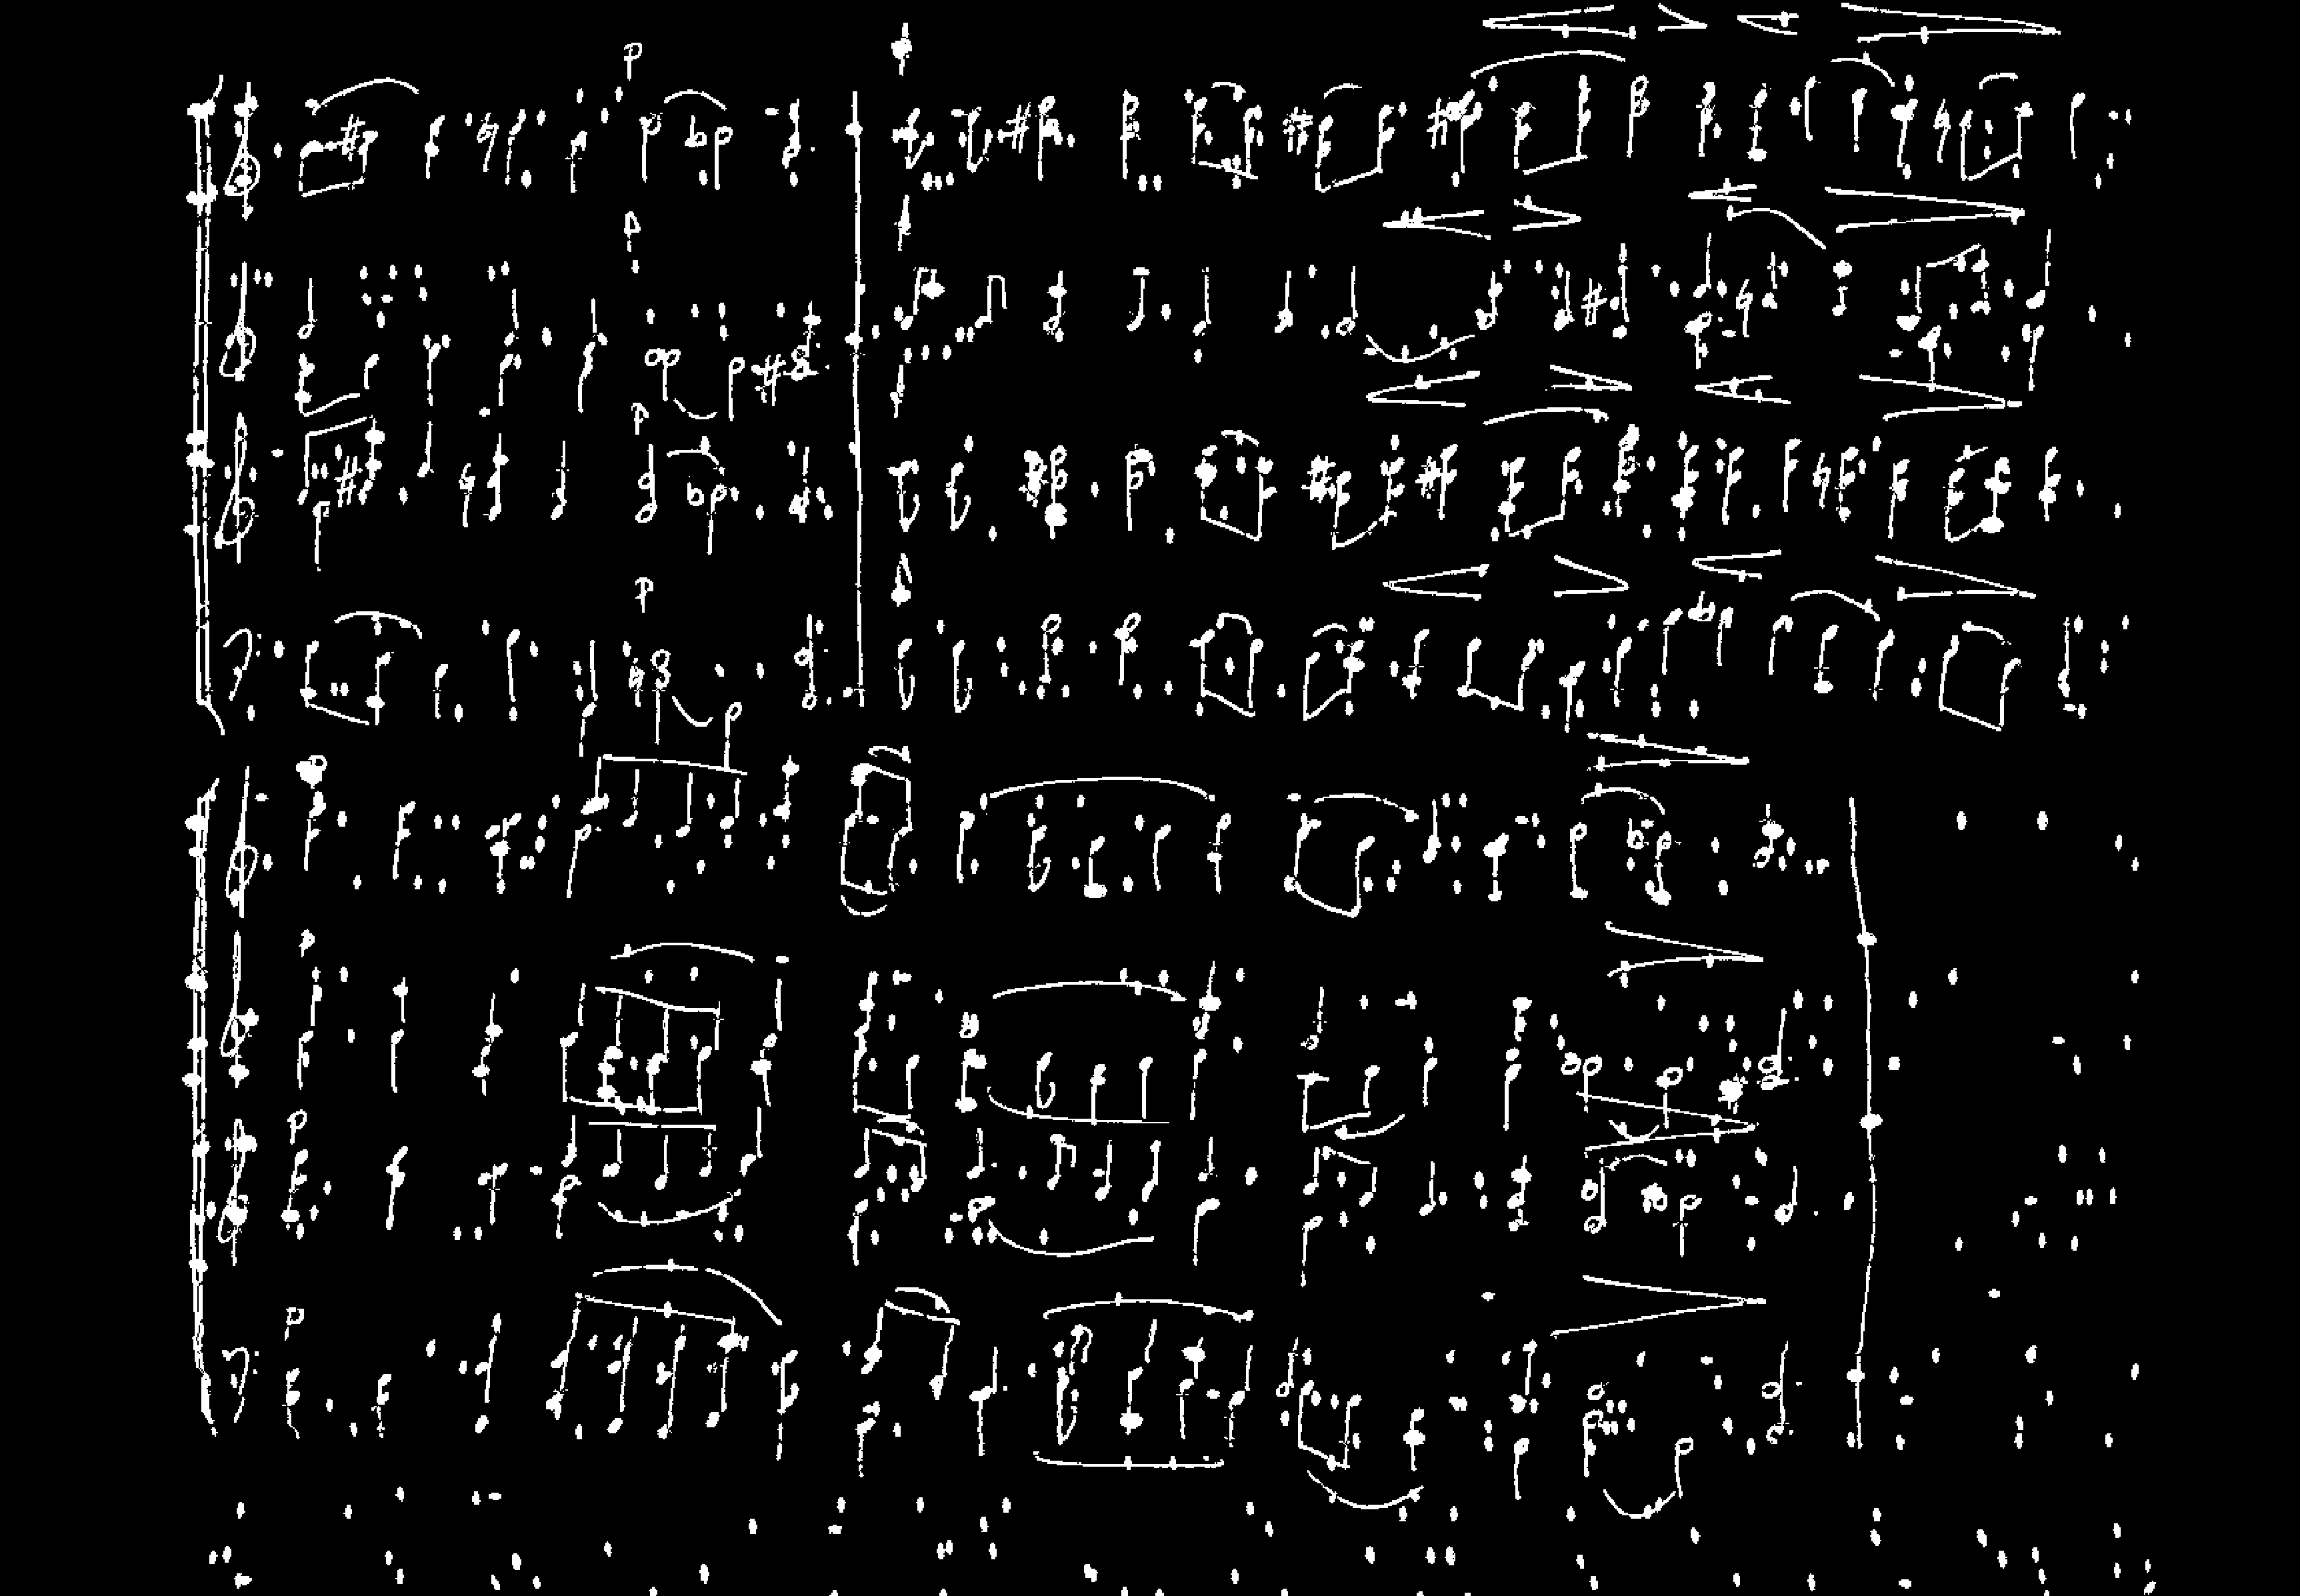 p
p
p
p
p
p
p